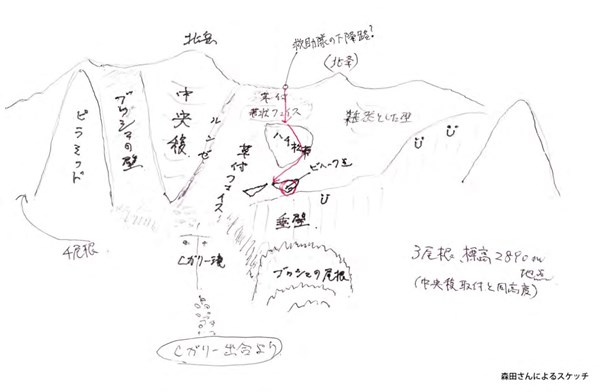 北岳
救助隊の下降路?
草付
帯状フェイス
雑然とした壁
ピラミッド
ブッシュの壁
中央稜
ルンゼ
草付フェイス
ハイ松帯
ビバーク点
垂壁
4尾根
Cガリー滝
ブッシュの尾根
3尾根、標高2890m
地点
(中央稜取付と同高度)
Cガリー出合より
森田さんによるスケッチ